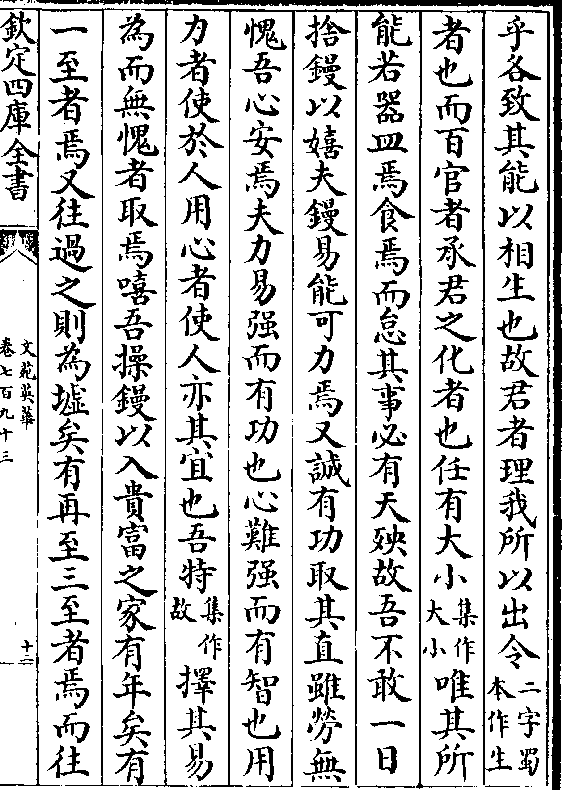 乎各致其能以相生也故君者理我所以出令二字蜀本作生
者也而百官者承君之化者也任有大小集作大小唯其所
能若器皿焉食焉而怠其事必有天殃故吾不敢一日
捨鏝以嬉夫鏝易能可力焉又誠有功取其直雖勞無
愧吾心安焉夫力易强而有功也心難强而有智也用
力者使於人用心者使人亦其宜也吾特集作故擇其易
為而無愧者取焉嘻吾操鏝以入貴富之家有年矣有
一至者焉又往過之則為墟矣有再至三至者焉而往
欽定四庫全書
文苑英華
卷七百九十三
十二